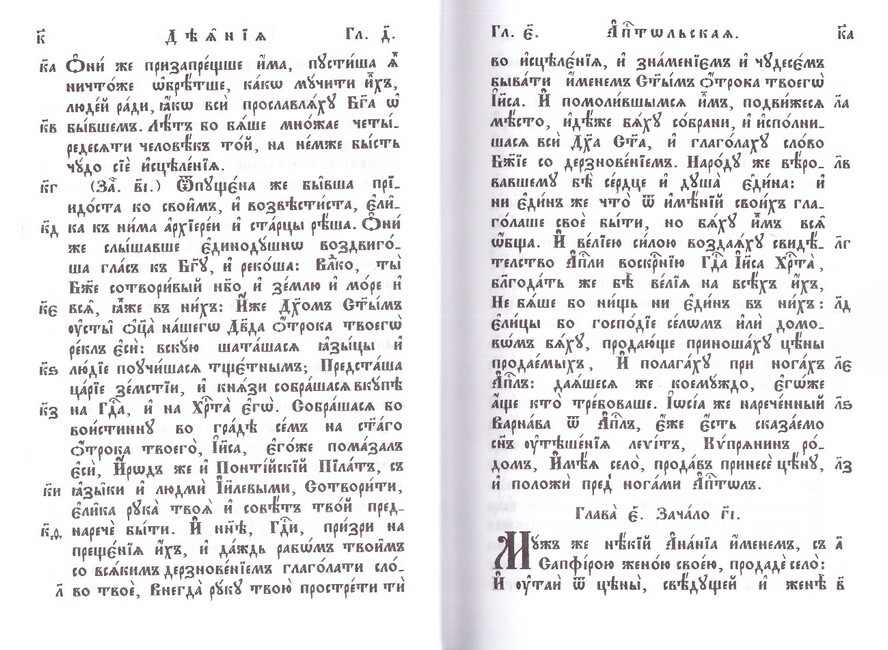 к҃ Дѣѧ҆́нїѧ Гл. д҃.
к҃а Ѻ҆ни́ же призапре́щше и҆̀ма, пꙋсти́ша ѧ҆̀
ничто́же ѡ҆брѣ́тше, ка́кѡ мꙋ́чити и҆̀хъ,
люде́й ра́ди, ꙗ҆́кѡ всѝ прославлѧ́хꙋ бг҃а ѡ҆
к҃в бы́вшемъ. Лѣ́тъ бо бѧ́ше мно́жае четы́-
редесѧти человѣ́къ то́й, на не́мже бы́сть
чꙋ́до сїѐ и҆сцѣле́нїѧ.
к҃г (За҄. в҃і.) Ѿпꙋщє́на же бы̑вша прї-
идо́ста ко свои̑мъ, и҆ возвѣсти́ста, є҆ли̑-
к҃д ка къ ни́ма а҆рхїере́и и҆ ста́рцы рѣ́ша. Ѻ҆ни́
же слы́шавше є҆динодꙋ́шнѡ воздвиго́-
ша гла́съ къ бг҃ꙋ, и҆ реко́ша: Влⷣко, ты̀
бж҃е сотвори́вый нб҃о и҆ зе́млю и҆ мо́ре и҆
к҃є всѧ̑, ꙗ҆̀же въ ни́хъ: И҆́же дх҃омъ ст҃ы́мъ
ᲂу҆сты̀ ѻ҆ц҃а̀ на́шегѡ дв҃да ѻ҆́трока твоегѡ̀
ре́клъ є҆сѝ: вскꙋ́ю шата́шасѧ ꙗ҆зы́цы и҆
к҃ѕ лю́дїе поꙋчи́шасѧ тщє́тнымъ; Предста́ша
ца́рїе зе́мстїи, и҆ кнѧ̑зи собра́шасѧ вкꙋ́пѣ
к҃з на гдⷭ҇а, и҆ на хрⷭ҇та̀ є҆гѡ̀. Собра́шасѧ бо
вои́стиннꙋ во гра́дѣ се́мъ на ст҃а́го
ѻ҆́трока твоего̀, і҆и҃са, є҆го́же пома́залъ
є҆сѝ, И҆́рѡдъ же и҆ Понті́йскїй Пїла́тъ, съ
к҃и ꙗ҆зы̑ки и҆ людьмѝ і҆и҃левыми, Сотвори́ти,
є҆ли̑ка рꙋка̀ твоѧ̀ и҆ совѣ́тъ тво́й пред-
к҃ѳ наречѐ бы́ти. И҆ нн҃ѣ, гдⷭ҇и, при́зри на
преще́нїѧ и҆́хъ, и҆ да́ждь рабѡ́мъ твои̑мъ
со всѧ́кимъ дерзнове́нїемъ глаго́лати сло́-
л҃ во твоѐ, Внегда̀ рꙋ́кꙋ твою̀ простре́ти тѝ
Гл. є҃. А҆пⷭ҇тѡльскаѧ. к҃а
во и҆сцѣлє́нїѧ, и҆ зна́менїємъ и҆ чꙋдесє́мъ
быва́ти и҆́менемъ ст҃ы́мъ ѻ҆́трока твоегѡ̀
І҆и҃са. И҆ помоли́вшымсѧ и҆̀мъ, подви́жесѧ л҃а
мѣ́сто, и҆дѣ́же бѧ́хꙋ со́брани, и҆ и҆спо́лни-
шасѧ всѝ дх҃а ст҃а, и҆ глаго́лахꙋ сло́во
бж҃їе со дерзнове́нїемъ. Наро́дꙋ же вѣ́ро- л҃в
вавшемꙋ бѣ̀ се́рдце и҆ дꙋша̀ є҆ди́на: и҆
ни є҆ди́нъ же что̀ ѿ и҆мѣ́нїй свои́хъ гла-
го́лаше своѐ бы́ти, но бѧ́хꙋ и҆̀мъ всѧ̑
ѡ҆́бща. И҆ ве́лїею си́лою воздаѧ́хꙋ свидѣ́- л҃г
тельство а҆пⷭ҇ли воскрⷭ҇нїю гдⷭ҇а і҆и҃са хрⷭ҇та̀,
благода́ть же бѣ̀ ве́лїѧ на всѣ́хъ и҆́хъ,
Не бѧ́ше бо ни́щъ ни є҆ди́нъ въ ни́хъ: л҃д
є҆ли́цы бо господі́е се́лѡмъ и҆лѝ домо-
вѡ́мъ бѧ́хꙋ, продаю́ще приноша́хꙋ цѣ́ны
продає́мыхъ, И҆ полага́хꙋ при нога́хъ л҃є
а҆пⷭ҇лъ: даѧ́шесѧ же коемꙋ́ждо, є҆гѡ́же
а҆́ще кто̀ тре́боваше. І҆ѡсі́а же нарече́нный л҃ѕ
Варна́ва ѿ а҆пⷭ҇лъ, є҆́же є҆́сть сказа́емо
сн҃ъ ᲂу҆тѣше́нїѧ леѵі́тъ, Кѵ́прѧнинъ ро́-
домъ, И҆мѣ́ѧ село̀, прода́въ принесѐ цѣ́нꙋ, л҃з
и҆ положѝ пред̾ нога́ми а҆пⷭ҇тѡлъ.
Глава̀ є҃. Зача́ло г҃і.
Мꙋ́жъ же нѣ́кїй А҆на́нїа и҆́менемъ, съ а҃
Сапфі́рою жено́ю свое́ю, продадѐ село̀:
И҆ ᲂу҆таѝ ѿ цѣны̀, свѣ́дꙋщей и҆ женѣ̀ в҃